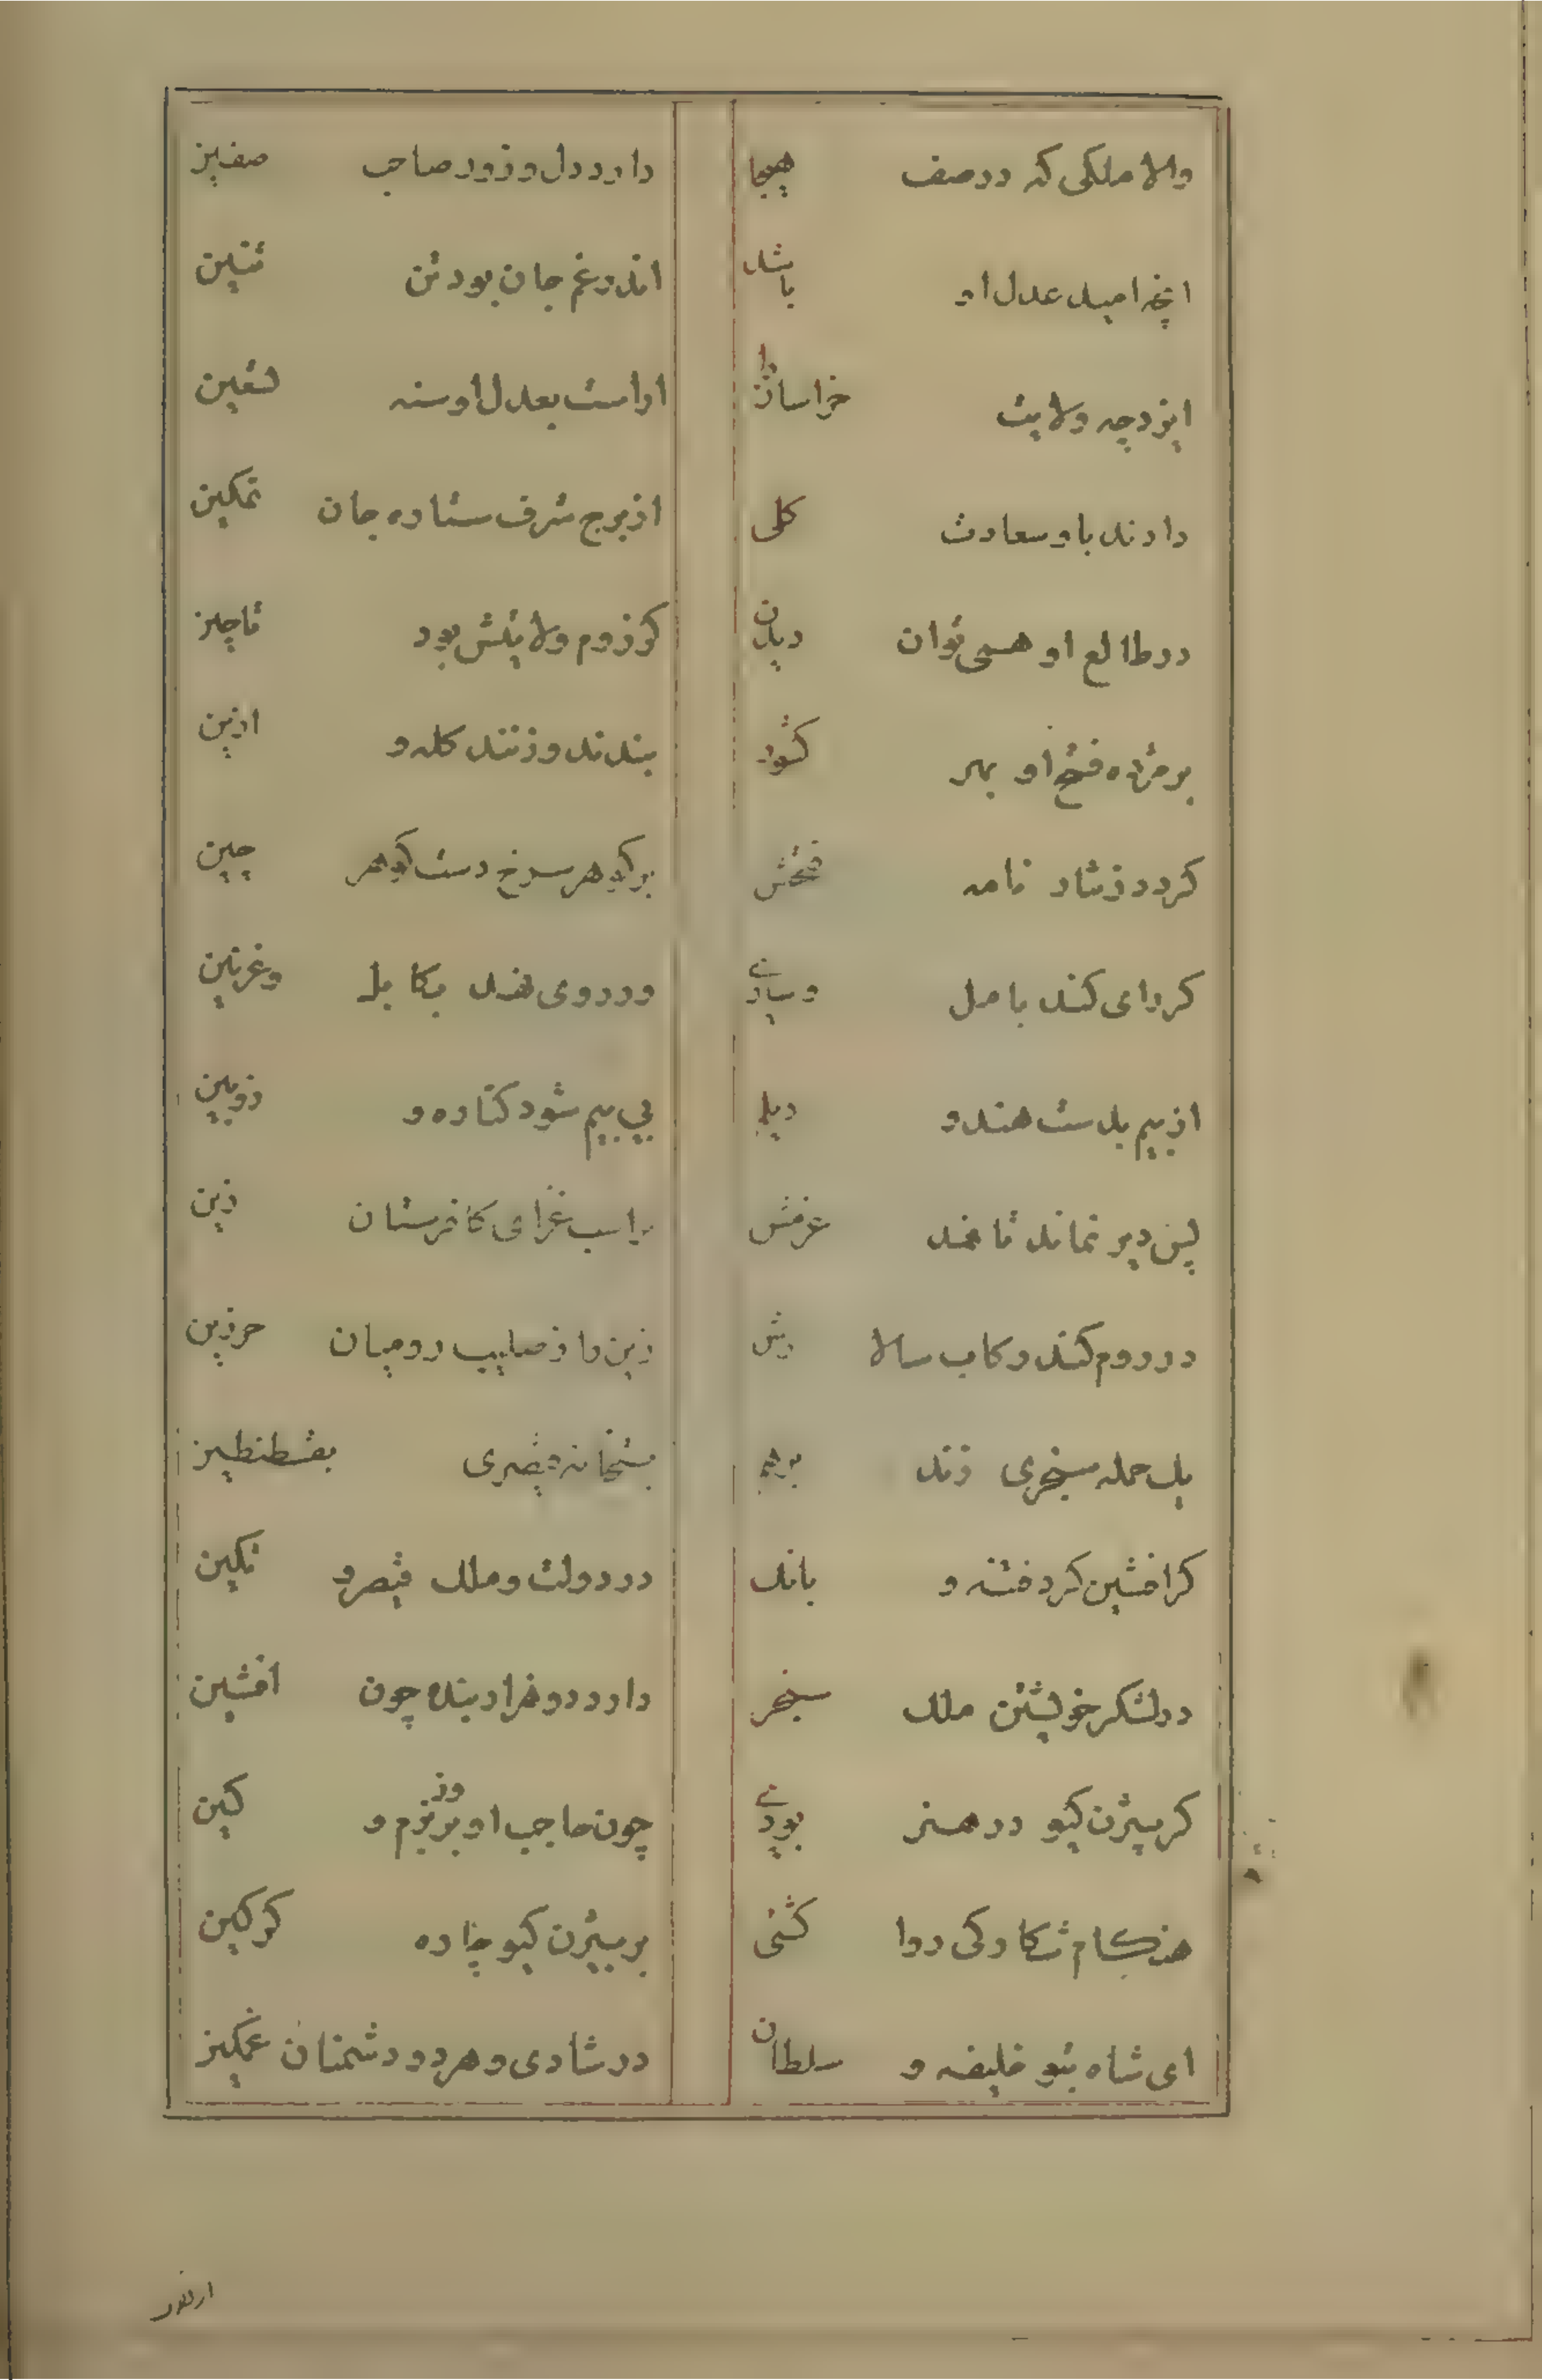 والا ملکی که در صف هیجا دارد دل و زور صاحب صفین
انجه امید عدل او باشد اندر غم جان بود تن تنین
ایزد چه ولایت خراسان را اراست بعدل او سنه تسعین
دادند باو سعادت کلی از برج شرف ستاره جان تمکین
در طالع او همی توان دیدن کز روم ولایتش بود تا چین
بر مژده فتح او بهر کشور بندند و زنند کله و اذین
کردد ز نثار نامه فتحش بر کوهر سرخ دست کوهر چین
کر رای کند بامل و ساری ور روی نهد بکابل و غزنین
از بیم بدست هندو دیلم بی بیم شود کتاره و زوبین
پس دیر نماند تا نهد عزمش بر اسب غزای کافرستان زین
در روم کند رکاب سالارش زین را ز صلیب رومیان حرزین
یک حمله سنجری زند برهم بتخانه قیصری بقسطنطین
کر افشین کرد فتنه و بانک در دولت و ملک قیصر و تکین
در لشکر خویشتن ملک سنجر دارد دو هزار بنده چون افشین
کر بیژن کیو در هنر بودی چون حاجب او بروز بزم و کین
هنکام شکار کی روا کشتی بر بیژن کیو چاره کرکین
ای شاه بتو خلیفه و سلطان در شادی و هر دو دشمنان غمکین